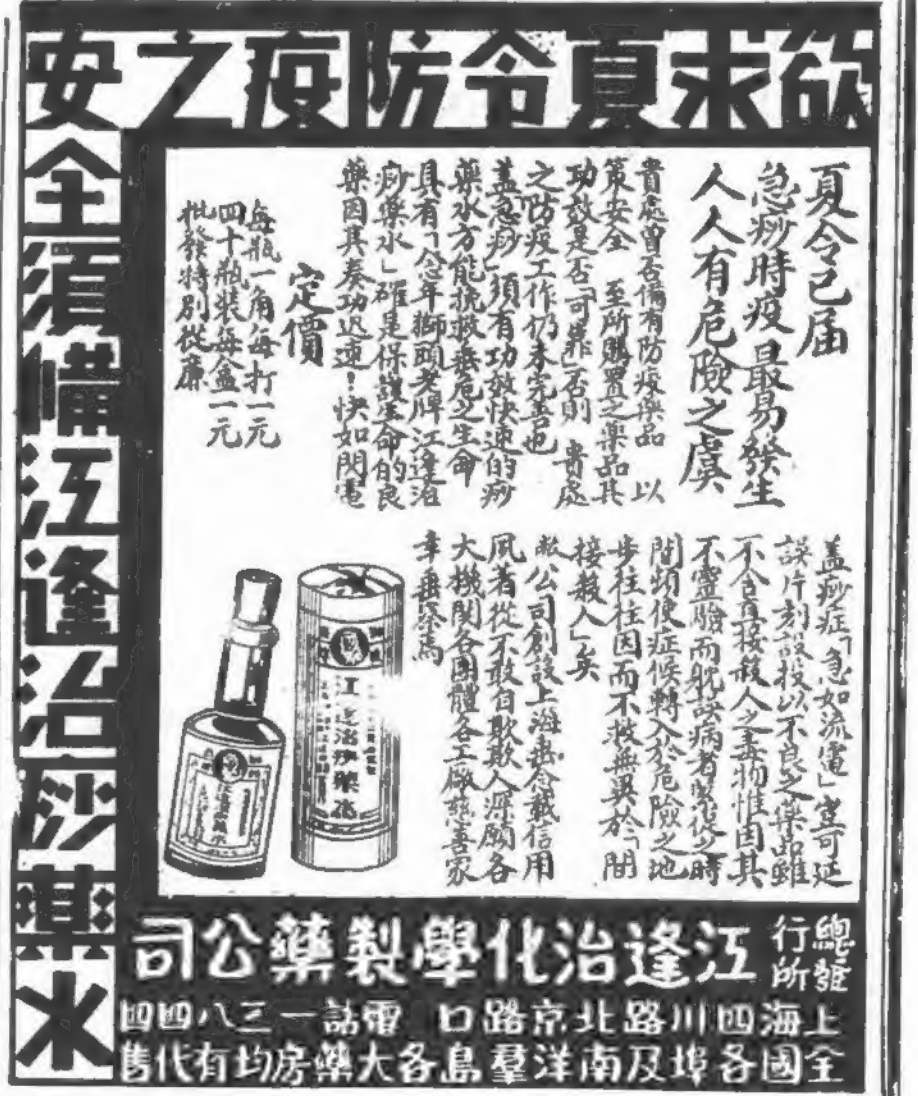 欲求夏令防疫之安全須備江逢治痧藥水
夏令已届
急痧時疫最易發生
人人有危險之虞
貴處曾否備有防疫藥品 以
策安全 至所購置之藥品其
功效是否「可靠」否則 貴處
之防疫工作仍未完善也
蓋急痧」須有功效快速的痧
藥水方能挽救垂危之生命
具有「念年獅頭老牌江逢治
痧藥水」確是保護生命的良
藥因其奏功迅速！快如閃電
定價
每瓶一角每打一元
四十瓶裝每盒一元
批發特別從廉
蓋痧症「急如流電」豈可延
誤片刻設投以不良之藥品雖
不含直接殺人之毒物惟因其
不靈驗而躭誤病者緊促之時
間頻使症候轉入於危險之地
步往往因而不救無異於「間
接殺人」矣
敝公司創設上海垂念載信用
夙著從不敢自欺欺人深願各
大機関各團體各工廠慈善家
幸垂詧焉
江逢治痧藥水
總發行所
江逢治化學製藥公司
上海四川路北京路口 電話一三八四四
全國各埠及南洋羣島各大藥房均有代售